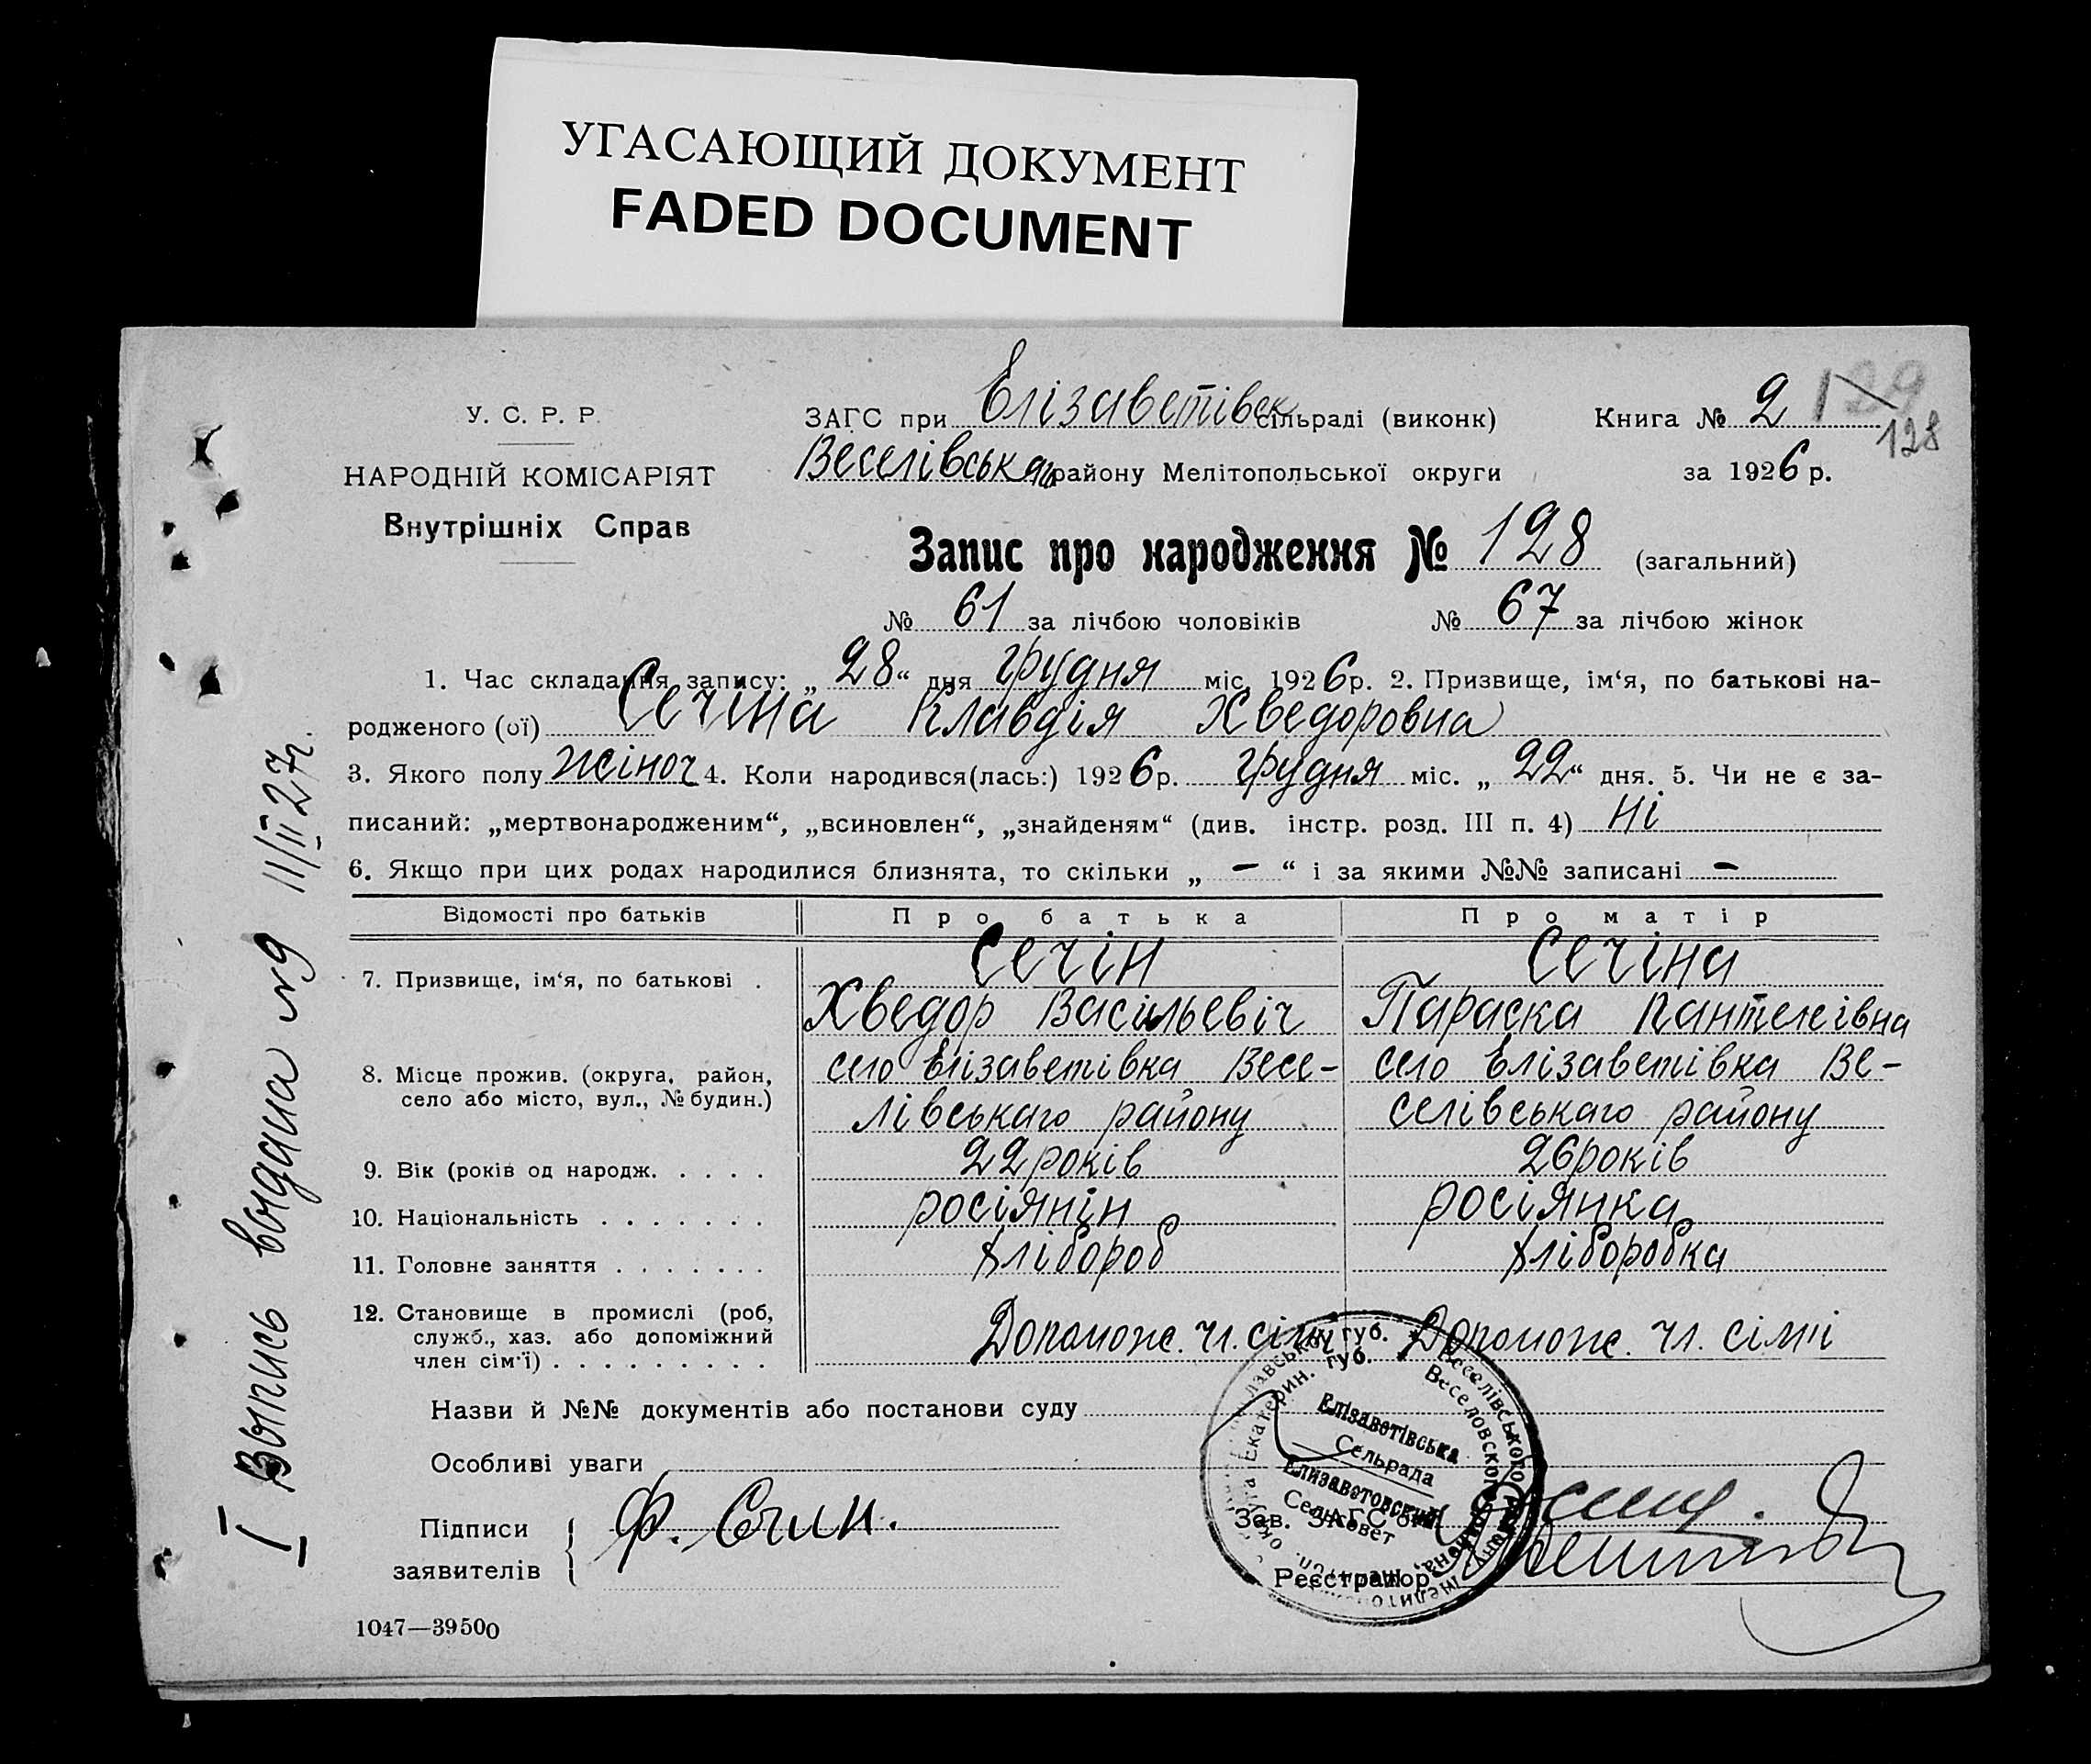 УГАСАЮЩИЙ ДОКУМЕНТ
FADED DOCUMENT
У. С. Р. Р.
НАРОДНІЙ КОМІСАРІЯТ
Внутрішніх Справ
ЗАГС при Елізаветівск сільраді (виконк)
Веселівського району Мелітопольської округи
Книга № 2
129
128
за 1926 р.
Запис про народження № 128 (загальний)
№ 61 за лічбою чоловіків № 67 за лічбою жінок
1. Час складання запису: „28“ дня грудня міс. 1926 р. 2. Призвище, ім‘я, по батькові на-
родженого (ої) Сечіна Клавдія Хведоровна
3. Якого полу жіноч 4. Коли народився(лась:) 1926 р. грудня міс. „22“ дня. 5. Чи не є за-
писаний: „мертвонародженим“, „всиновлен“, „знайденям“ (див. інстр. розд. III п. 4) ні
6. Якщо при цих родах народилися близнята, то скільки „ — “ і за якими №№ записані —
Відомості про батьків Про батька Про матір
7. Призвище, ім‘я, по батькові . Сечін Сечіна
Хведор Васильевіч Параска Пантелеівна
8. Місце прожив. (округа, район, село Елізаветівка Весе- село Елізаветівка Ве-
село або місто, вул., № будин.) лівськаго району селівськаго району
9. Вік (років од народж. . . . . 22 років 26 років
10. Національність . . . . . . . росіянін росіянка
11. Головне заняття . . . . . . . хлібороб хліборобка
12. Становище в промислі (роб,
служб., хаз. або допоміжний
член сім‘ї) . . . . . . . . . Допомож. чл. сімі Допомож. чл. сімі
Назви й №№ документів або постанови суду
Особливі уваги
Підписи
заявителів
Ф. Сечин.
Зав. ЗАГС‘ом
Реєстратор
Елізаветівська
Сельрада
Елизаветовский
Сельсовет
Екатерин. губ.
Веселівського району
Веселовского района,
1047—39500
I Выпись выдана №9 11/II 27г.